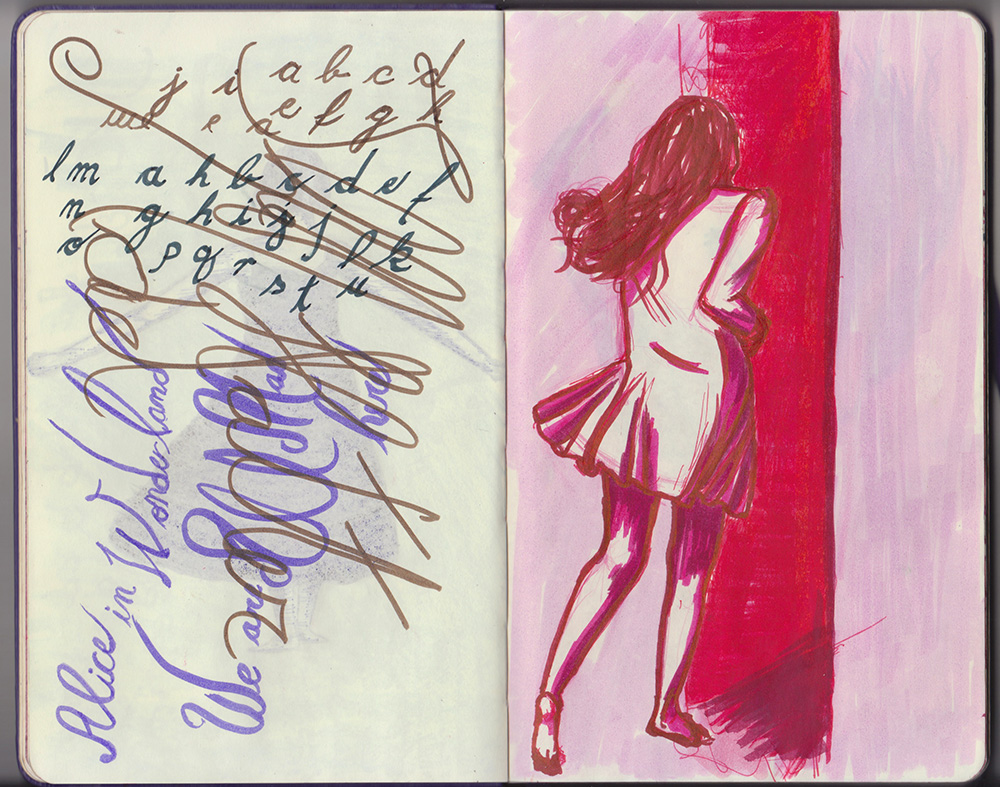 j i a b c d
e n e f g h
l m a h b c d e f
n g h i j j l k
o p q r s t u
Alice in Wonderland
We are all mad here